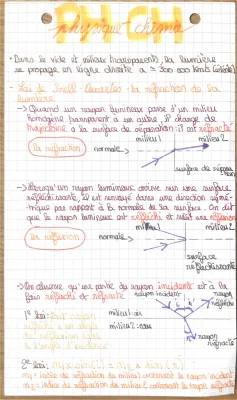 PH-CH
physique chimie
• Dans le vide et milieux transparents, la lumière
se propage en ligne droite à ≈ 300 000 km/s (célérité)
- Loi de Snell-Descartes : la réfraction de la
lumière
→ Quand un rayon lumineux passe d'un milieu
homogène transparent à un autre, il change de
trajectoire à la surface de séparation : il est réfracté
milieu 1 milieu 2
la réfraction normale
surface de sépara
tion
→ Lorsqu'un rayon lumineux arrive sur une surface
réfléchissante, il est renvoyé dans une direction symé-
trique par rapport à la normale de sa surface. On dit
que le rayon lumineux est réfléchi et subit une réflexion
milieu 1 milieu 2
la réflexion normale
surface
réfléchissante
→ On observe qu'une partie du rayon incident est à la
fois réfléchi et réfracté
rayon incident rayon réfléchi
1º loi : tout rayon
réfléchi
milieu 1 : air
milieu 2 : eau
rayon
réfracté
2º loi :
n1 = indice de réfraction du milieu 1 contenant le rayon incident
n2 = indice de réfraction du milieu 2 contenant le rayon réfracté